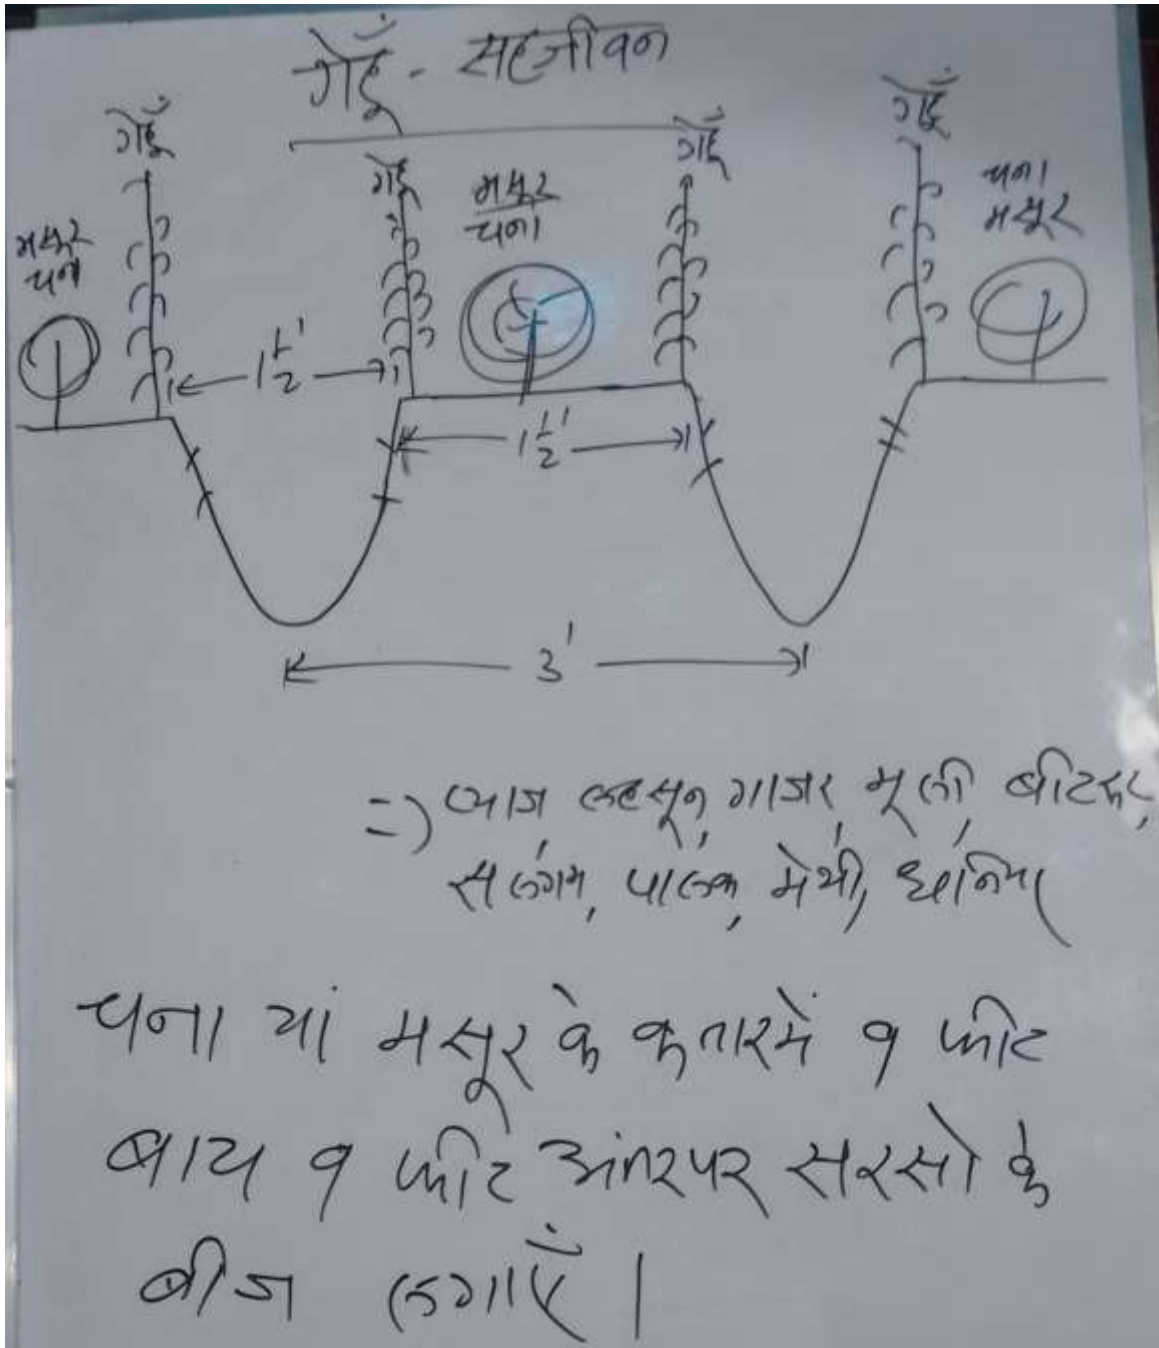 गेहूँ - सहजीवन
गेहूँ
गेहूँ
गेहूँ
गेहूँ
मसूर
चना
मसूर
चना
चना
मसूर
1 1/2'
1 1/2'
3'
=> प्याज, लहसून, गाजर, मूली, बीटरूट,
सलगम, पालक, मेथी, धनिया
चना यां मसूर के कतारमें १ फीट
बाय १ फीट अंतरपर सरसो के
बीज लगाएँ |